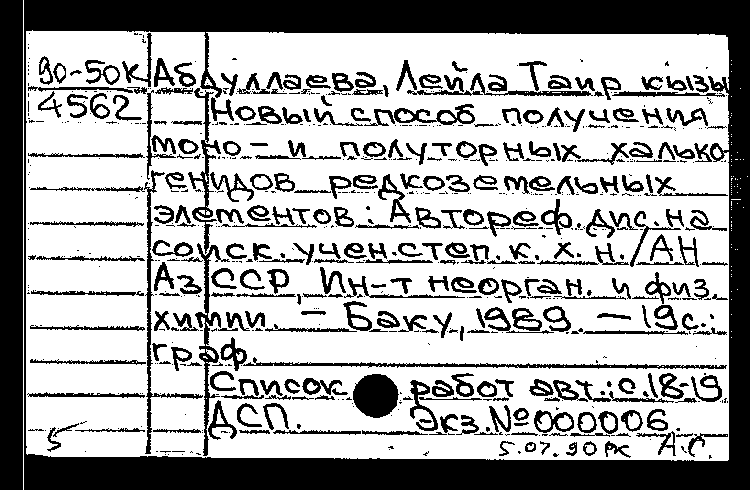 90-50К Абдуллаева, Лейла Таир кызы
4562 Новый способ получения
моно- и полуторных халько-
генидов редкоземельных
элементов: Автореф. дис. на
соиск. учен. степ. к. х. н. / АН
АзССР, Ин-т неорган. и физ.
химии. - Баку, 1989. - 19 с.:
граф.
Список работ авт.: с. 18-19
ДСП. Экз. № 000006.
5
5.07.90 РК А.С.